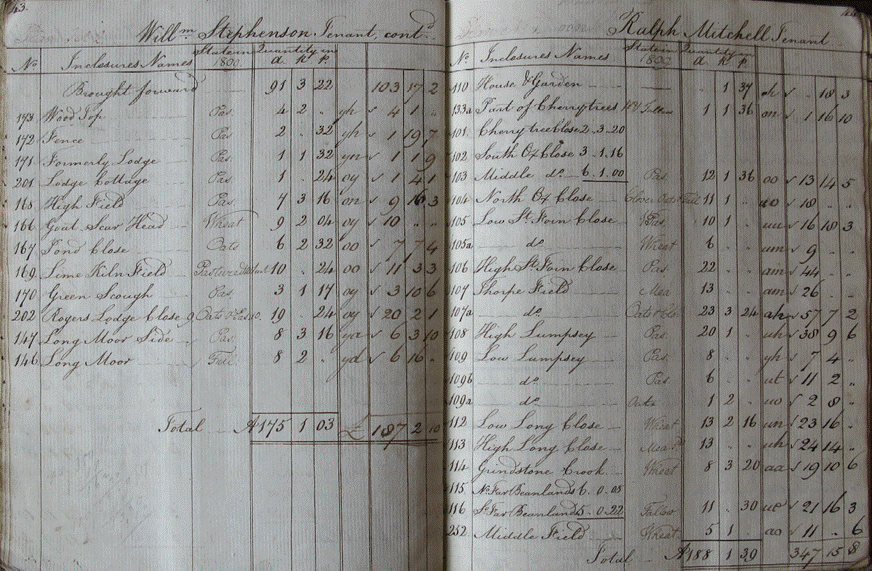 43.
Will.m Stephenson Tenant, cont.d
No. Inclosures Names State in 1800. Quantity in A R P
Brought forward 91 3 22 103 17 2
173 Wood Top Pas. 4 2 .. yh 4 1 ..
172 Fence Pas 2 .. 32 yh 1 19 7
171 Formerly Lodge Pas. 1 1 32 yn 1 1 9
201 Lodge Cottage Pas 1 .. 24 oy 1 4 1
165 High Field Pas. 7 3 16 on 9 16 3
166 Goat Scar Head Wheat 9 2 04 oy 10 .. ..
167 Pond Close Oats 6 2 32 oo 7 7 4
169 Lime Kiln Field 10 .. 24 oo 11 3 3
170 Green Scough Pas. 3 1 17 oy 3 10 6
202 Rogers Lodge Close 19 .. 24 oy 20 2 1
147 Long Moor Side Pas. 8 3 16 ya 6 3 10
146 Long Moor Fall. 8 2 .. ya 6 16 ..
Total A 175 1 03 £ 187 2 10
Ralph Mitchell Tenant
No. Inclosures Names State in 1800 Quantity in A R P
110 House & Garden .. 1 37 .. 18 3
133a Part of Cherrytrees 1 1 36 on 1 16 10
101 Cherrytree Close 2 . 3 . 20
102 South Ox Close 3 . 1 . 16
103 Middle do. 6 . 1 . 00 Pas 12 1 36 oo 13 14 5
104 North Ox Close 11 1 .. ao 18 .. ..
105 Low St. Foin Close Pas. 10 1 .. uu 16 18 3
105a do. Wheat 6 .. .. um 9 .. ..
106 High St. Foin Close Pas. 22 .. .. am 44 .. ..
107 Thorpe Field Mea 13 .. .. am 26 .. ..
107a do. 23 3 24 ah 57 7 2
108 High Lumpsey Pas. 20 1 .. uh 38 9 6
109 Low Lumpsey Pas. 8 .. .. yh 7 4 ..
109b do. Pas. 6 .. .. ut 11 2 ..
109a do. Oats 1 2 .. uo 2 8 ..
112 Low Long Close Wheat 13 2 16 un 23 16 ..
113 High Long Close Mea.d 13 .. .. uh 24 14 ..
114 Grindstone Crook Wheat 8 3 20 aa 19 10 6
115 No. Far Beanlands 6 . 0 . 08
116 So. Far Beanlands 5 . 0 . 22 Fallow 11 .. 30 ue 21 16 3
252 Middle Field Wheat 5 1 .. ao 11 .. 6
Total A 188 1 39 347 15 8